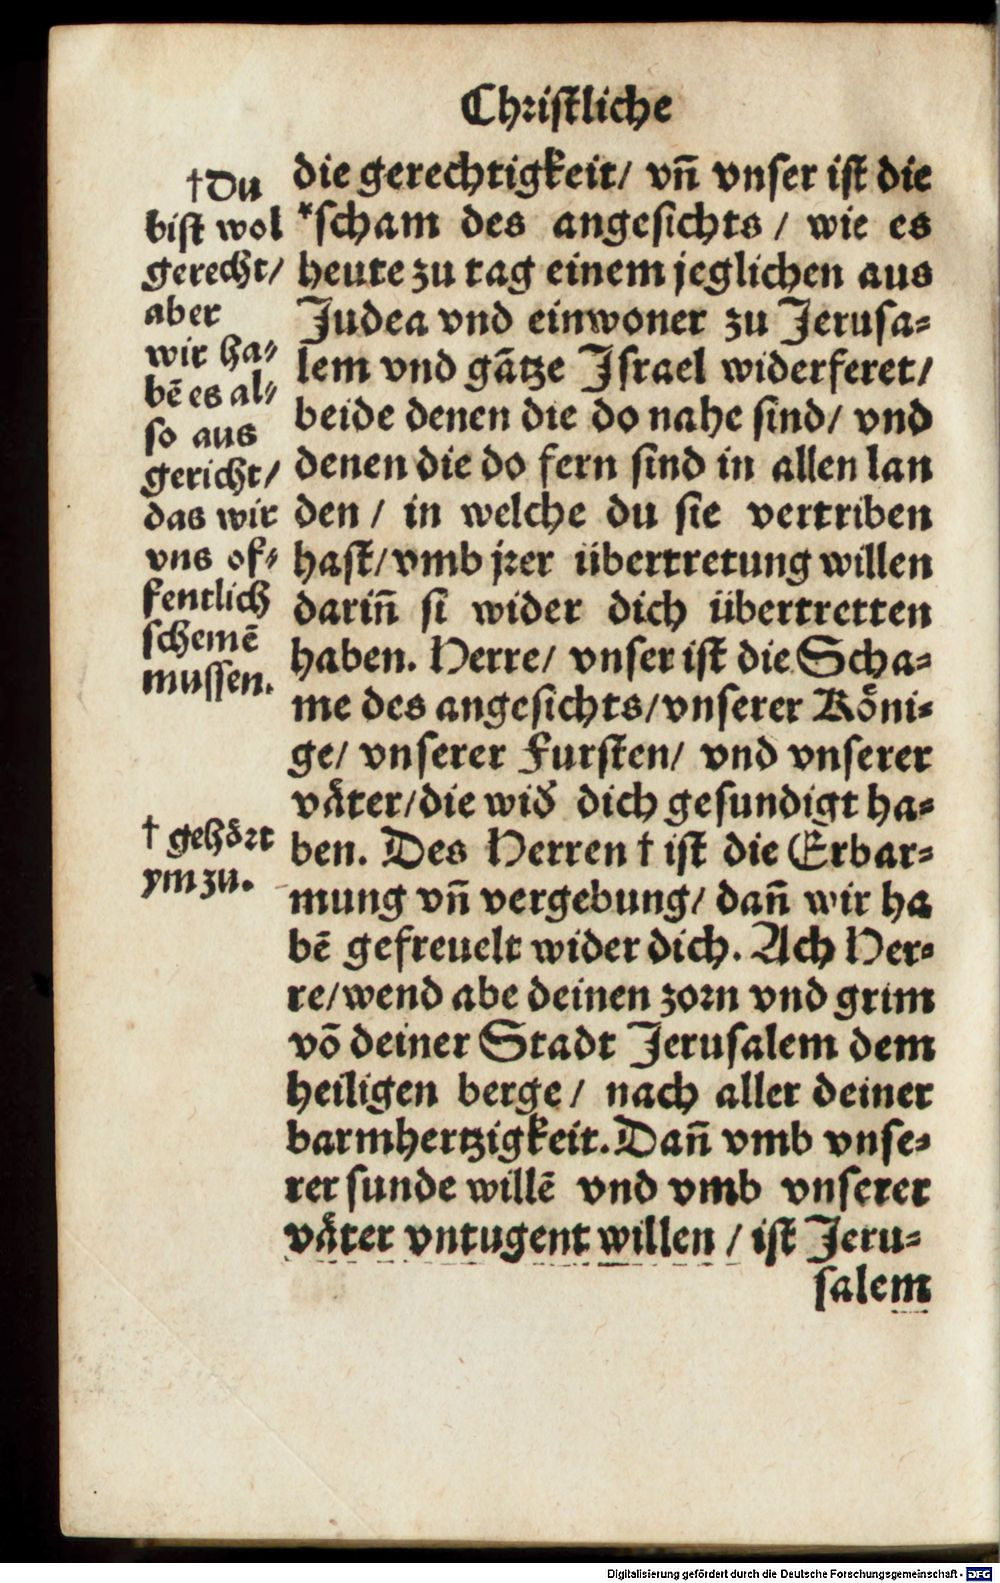 Christliche
†Du
bist wol
gerecht/
aber
wir ha⸗
bē es al⸗
so aus
gericht/
das wir
vns of⸗
fentlich
schemē
mussen.
† gehört
ym zu.
die gerechtigkeit/ vn̄ vnser ist die
*scham des angesichts / wie es
heute zu tag einem jeglichen aus
Judea vnd einwoner zu Jerusa⸗
lem vnd gātze Israel widerferet/
beide denen die do nahe sind/ vnd
denen die do fern sind in allen lan
den / in welche du sie vertriben
hast/vmb jrer übertretung willen
darin̄ si wider dich übertretten
haben. Herre/ vnser ist die Scha⸗
me des angesichts/vnserer Köni⸗
ge/ vnserer Fursten/ vnd vnserer
väter/die wid̓ dich gesundigt ha⸗
ben. Des Herren † ist die Erbar⸗
mung vn̄ vergebung/ dan̄ wir ha
bē gefreuelt wider dich. Ach Her⸗
re/wend abe deinen zorn vnd grim
vō deiner Stadt Jerusalem dem
heiligen berge / nach aller deiner
barmhertzigkeit. Dan̄ vmb vnse⸗
rer sunde willē vnd vmb vnserer
väter vntugent willen / ist Jeru⸗
salem
Digitalisierung gefördert durch die Deutsche Forschungsgemeinschaft - DFG